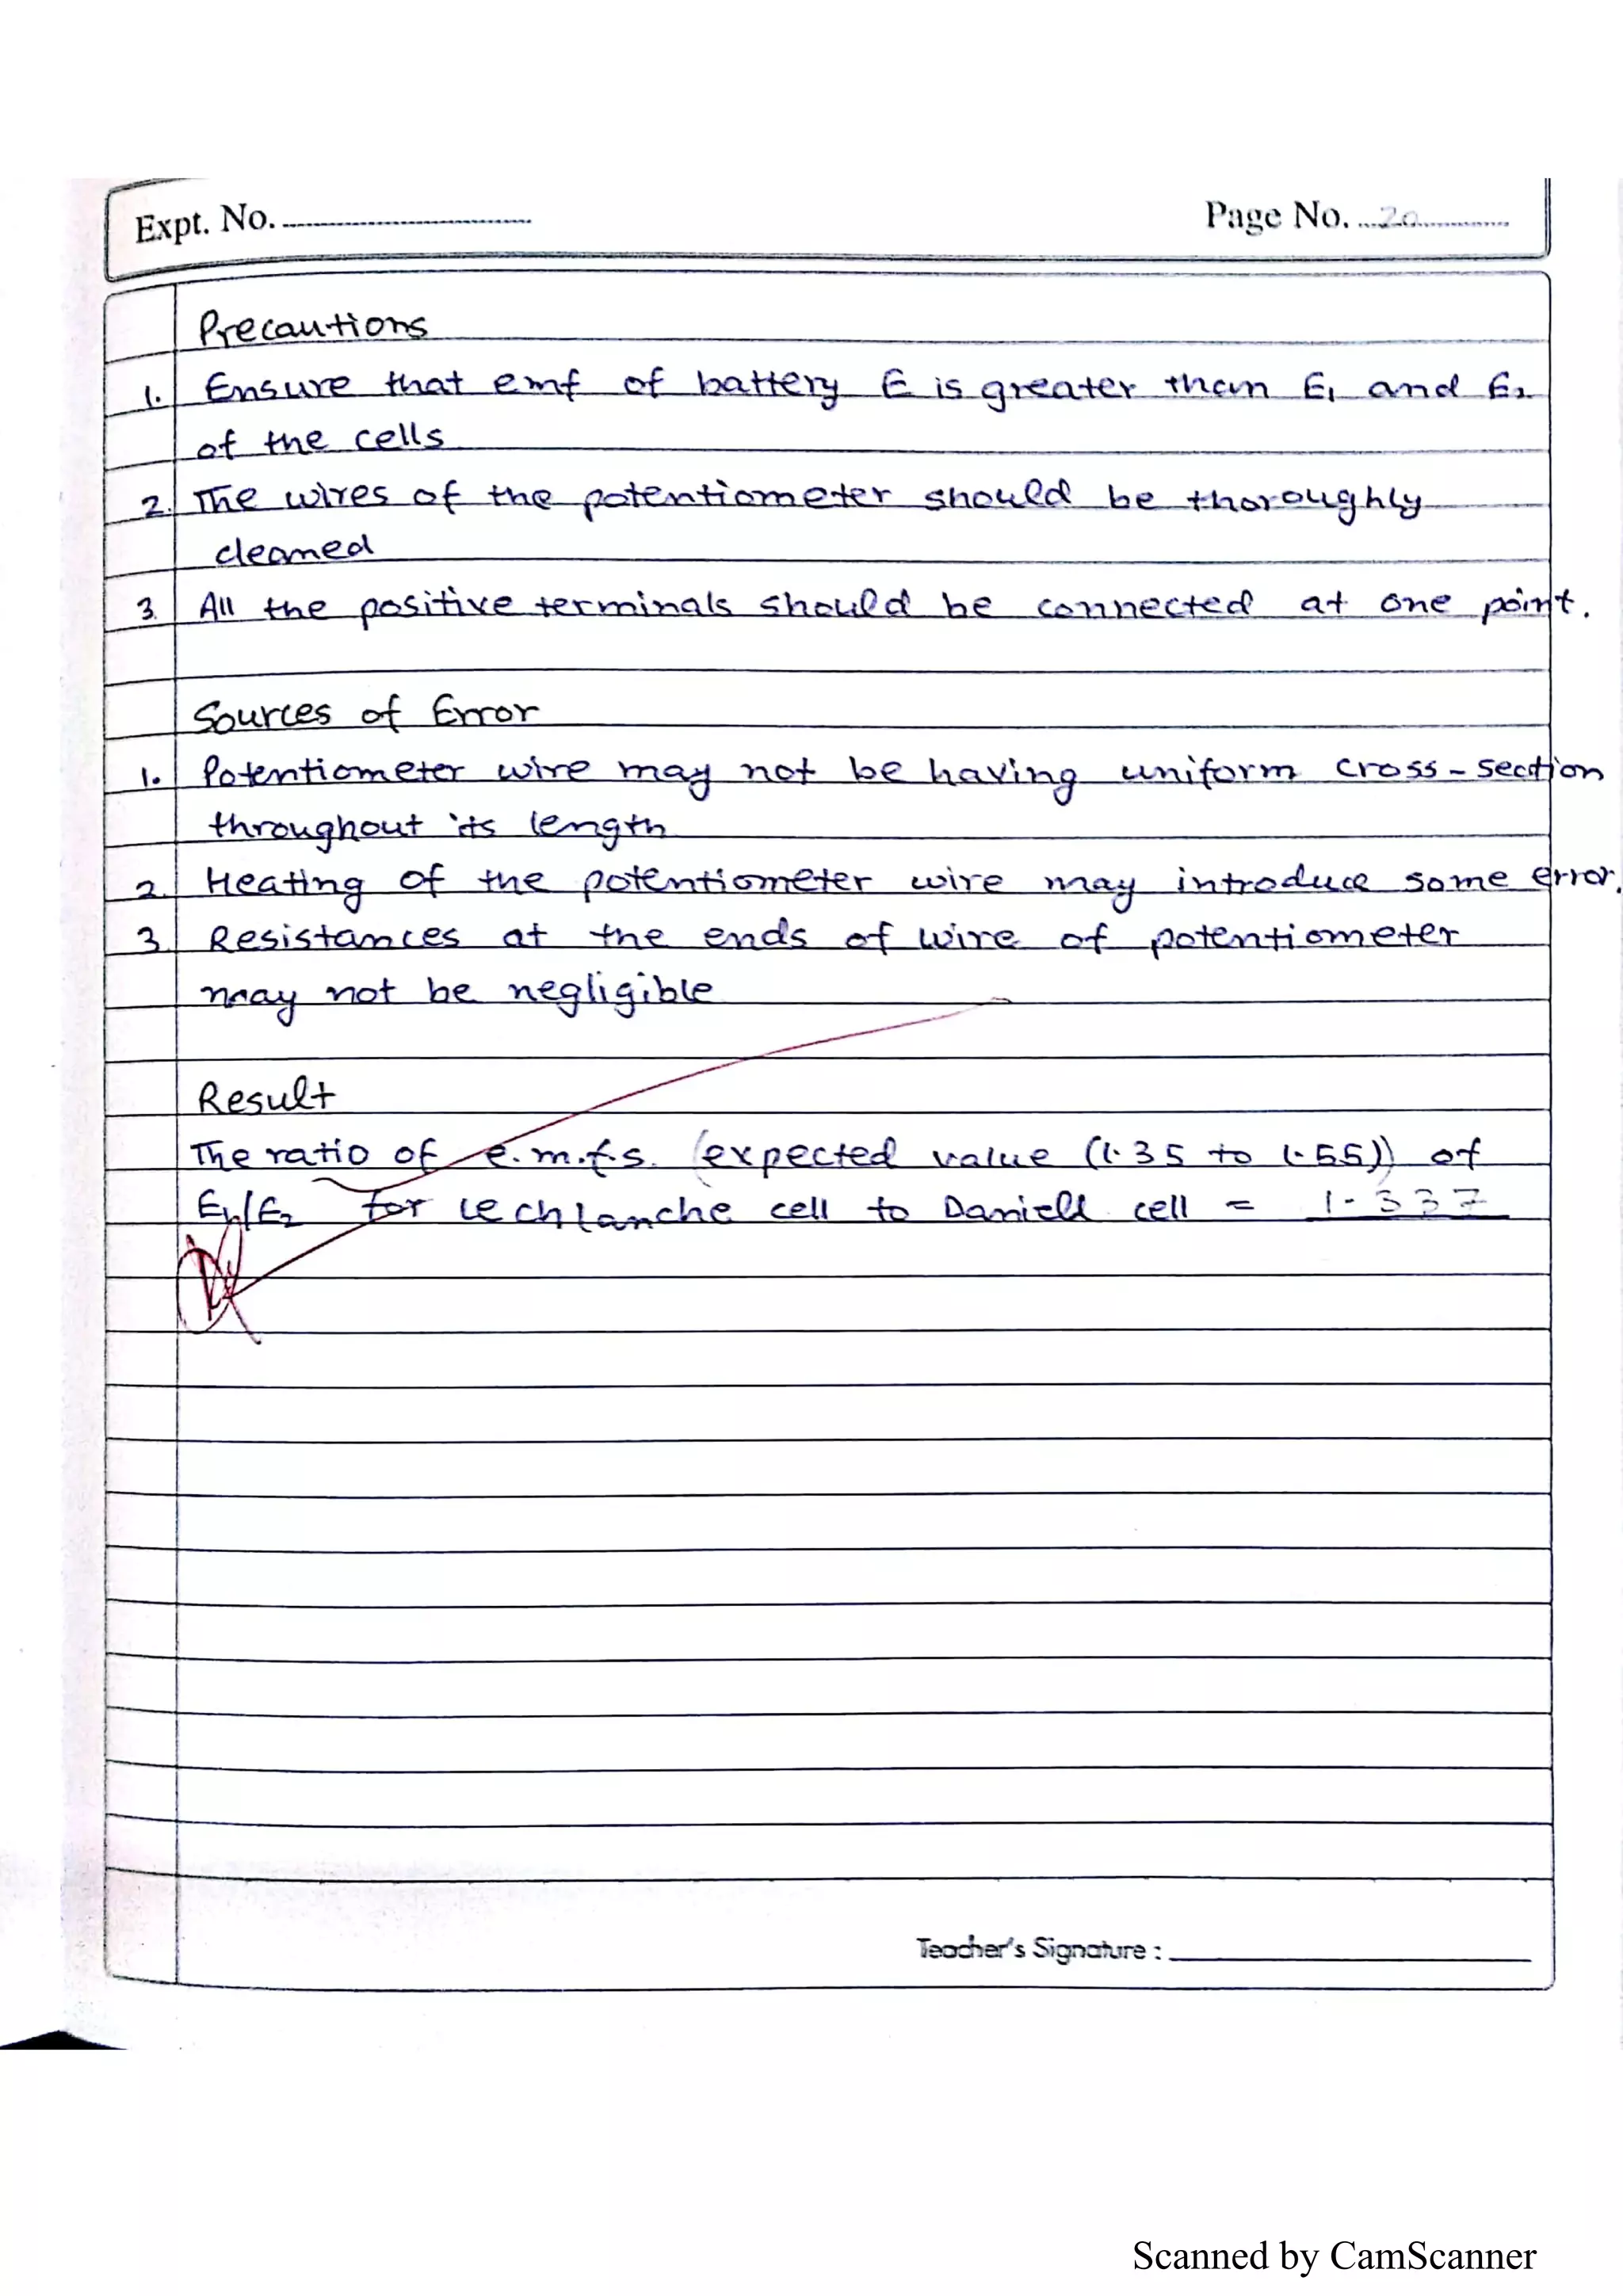 Expt. No.
Page No. 20
Precautions
1. Ensure that emf of battery E is greater than E1 and E2
of the cells
2. The wires of the potentiometer should be thoroughly
cleaned
3. All the positive terminals should be connected at one point.
Sources of Error
1. Potentiometer wire may not be having uniform cross-section
throughout its length
2. Heating of the potentiometer wire may introduce some error.
3. Resistances at the ends of wire of potentiometer
may not be negligible
Result
The ratio of e.m.f.s. (expected value (1.35 to 1.55)) of
E1/E2 for lechlanche cell to Daniell cell = 1.337
Teacher's Signature :
Scanned by CamScanner